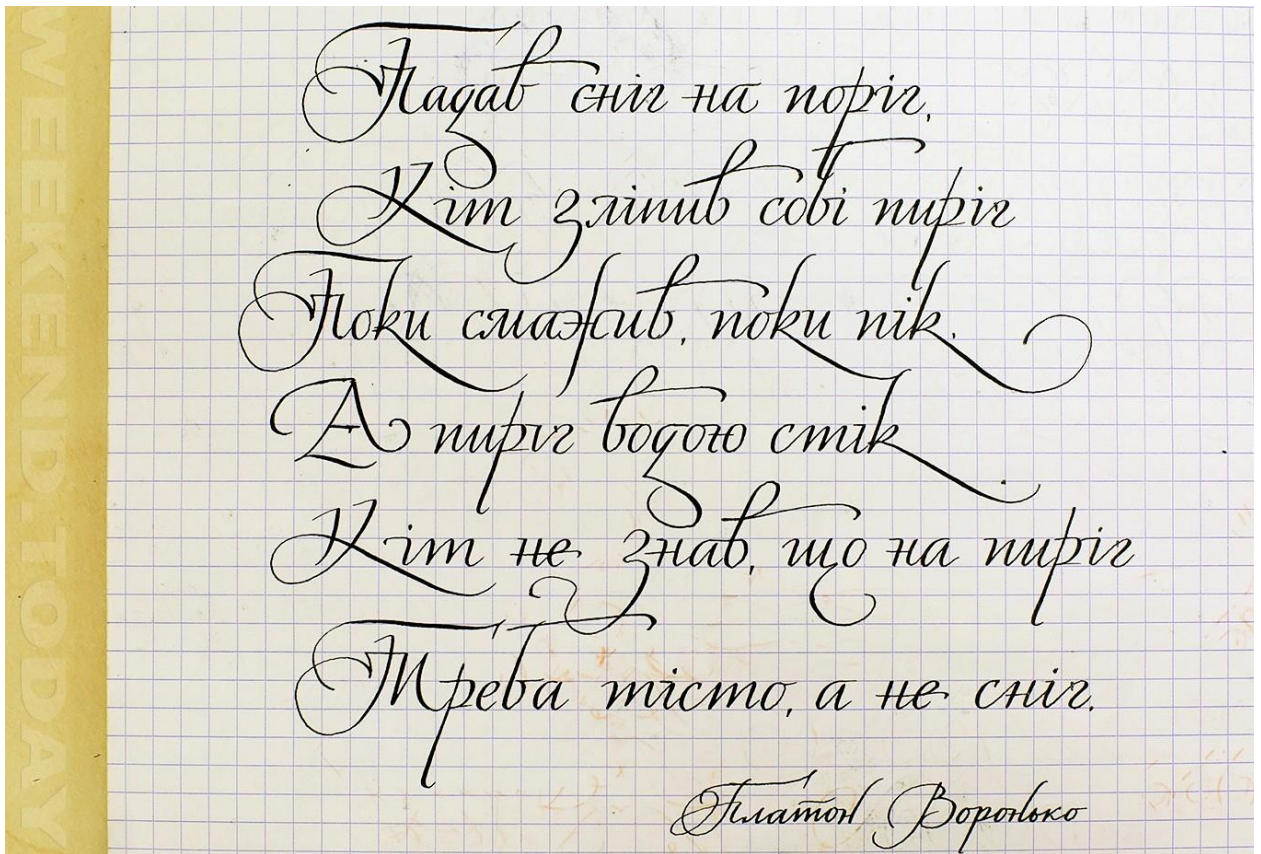 WEEKEND.TODAY
Падав сніг на поріг,
Кіт зліпив собі пиріг
Поки смажив, поки пік.
А пиріг водою стік
Кіт не знав, що на пиріг
Треба тісто, а не сніг.
Платон Воронько